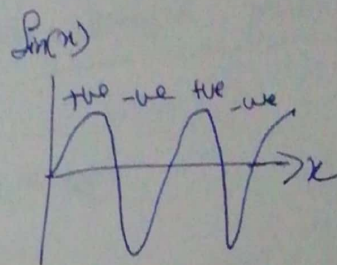 Sin(x)
+ve -ve +ve -ve
x